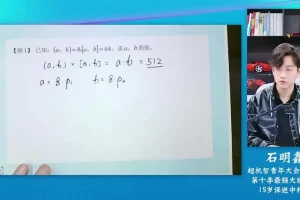 【例1】已知:(a,b)=8,[a,b]=64, 求a,b的值。
(a,b)×[a,b]=a·b=512
a=8·p₁ b=8·p₂
石明鑫
超机智青年大会
第十季最强大
15岁保送中科